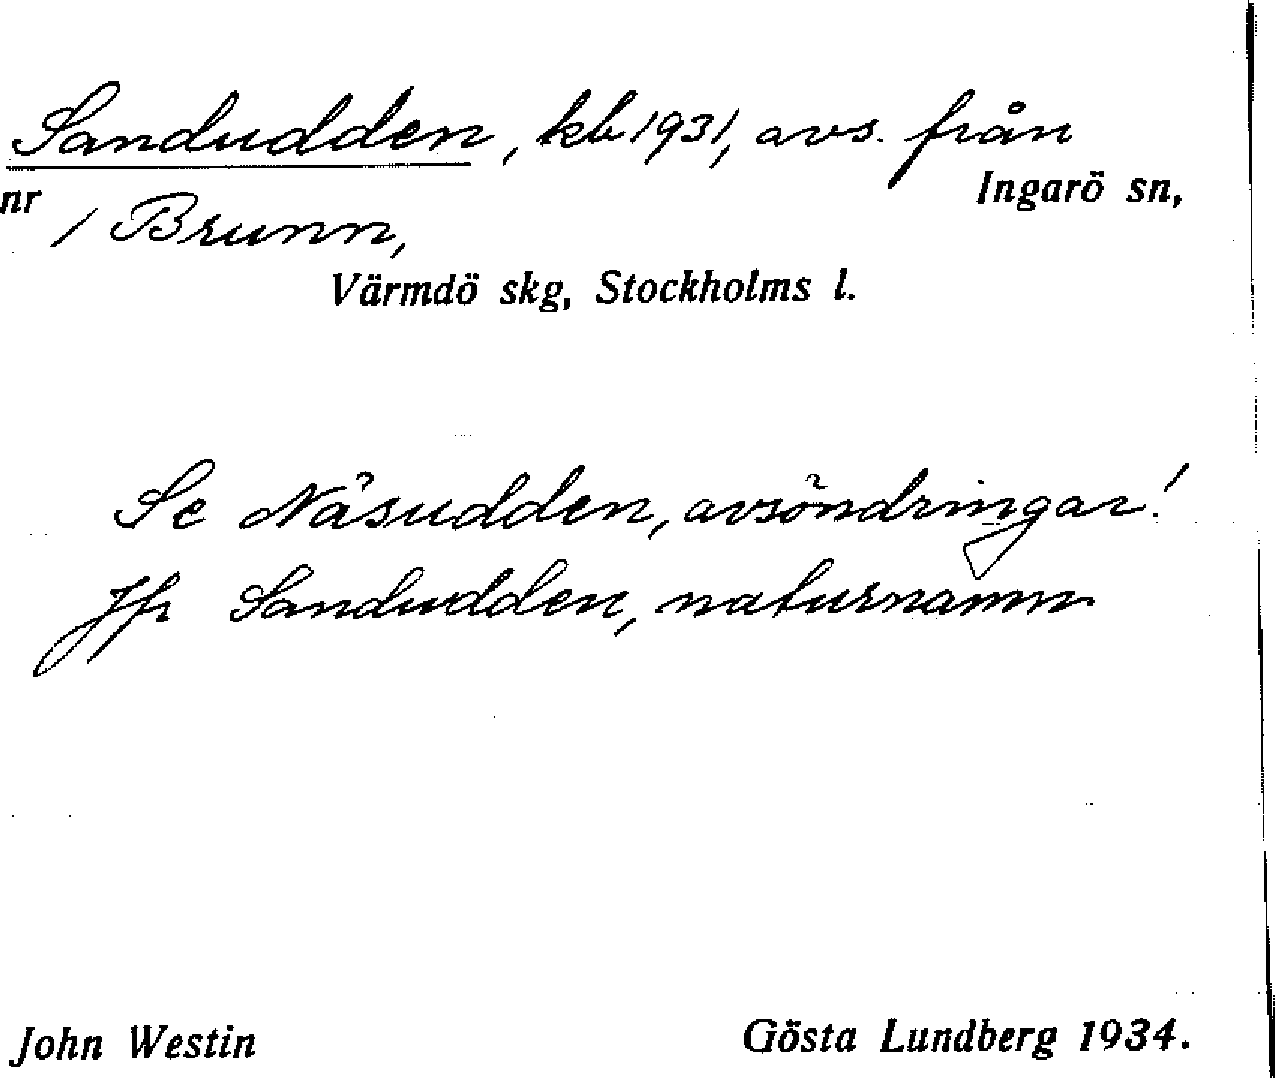 Sandudden, kb 1931, avs. från
Ingarö sn,
nr 1 Brunn,
Värmdö skg, Stockholms l.
Se Näsudden, avsöndringar!
Jfr Sandudden, naturnamn
John Westin
Gösta Lundberg 1934.